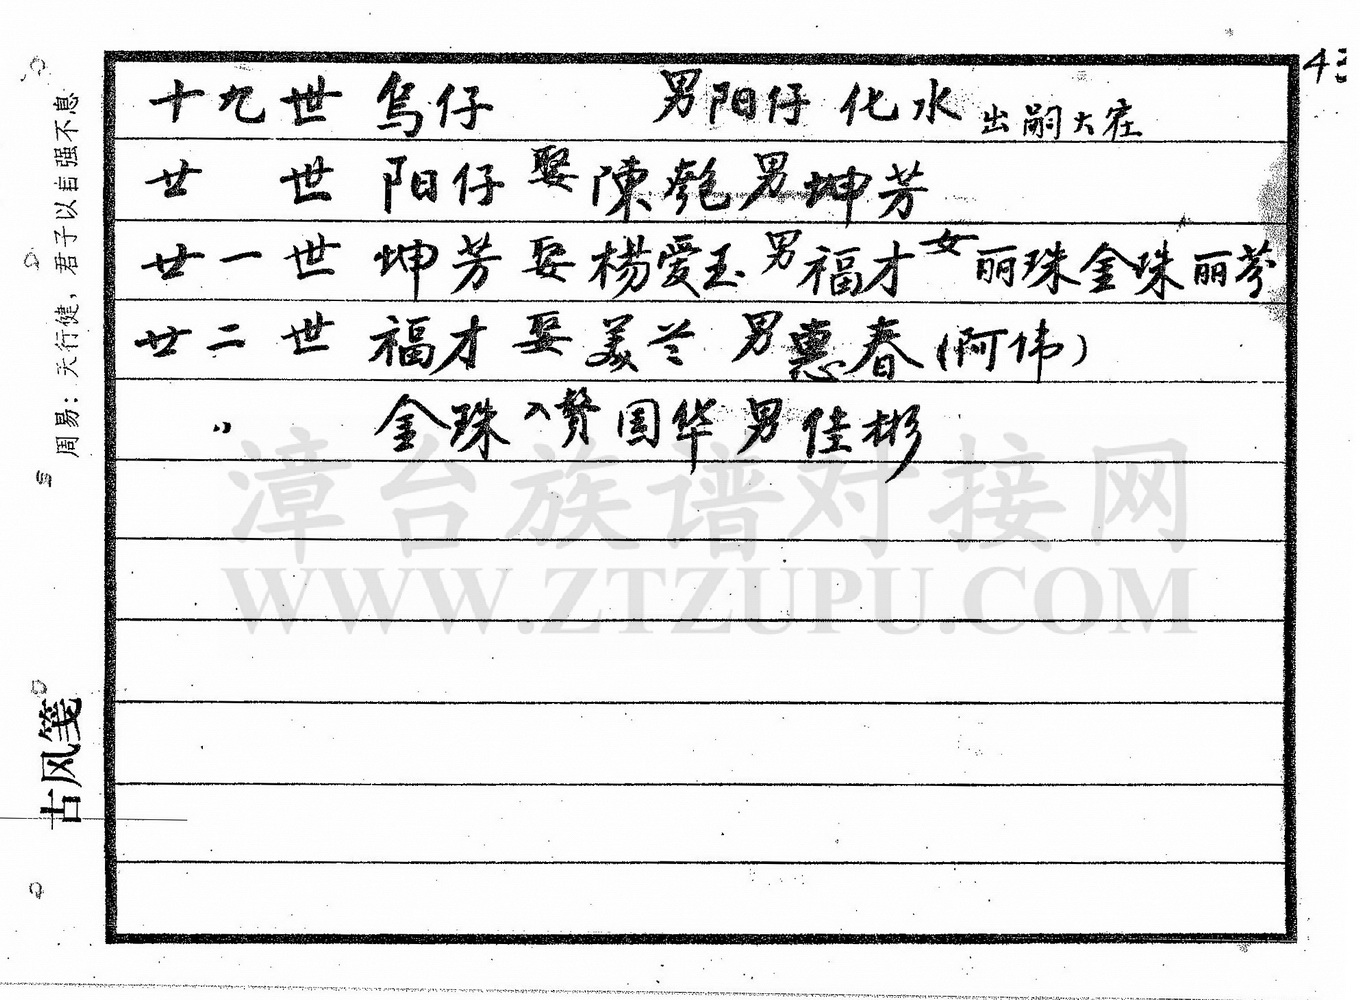 十九世 乌仔 男阳仔 化水 出嗣大在
廿 世 阳仔 娶 陳 男 坤芳
廿一世 坤芳 娶 楊爱玉 男福才 女丽珠金珠丽芬
廿二世 福才 娶 美兰 男惠春(阿伟)
〃 金珠 入赘 国华 男佳彬
周易：天行健，君子以自强不息
古风笺
漳台族谱对接网
WWW.ZTZUPU.COM